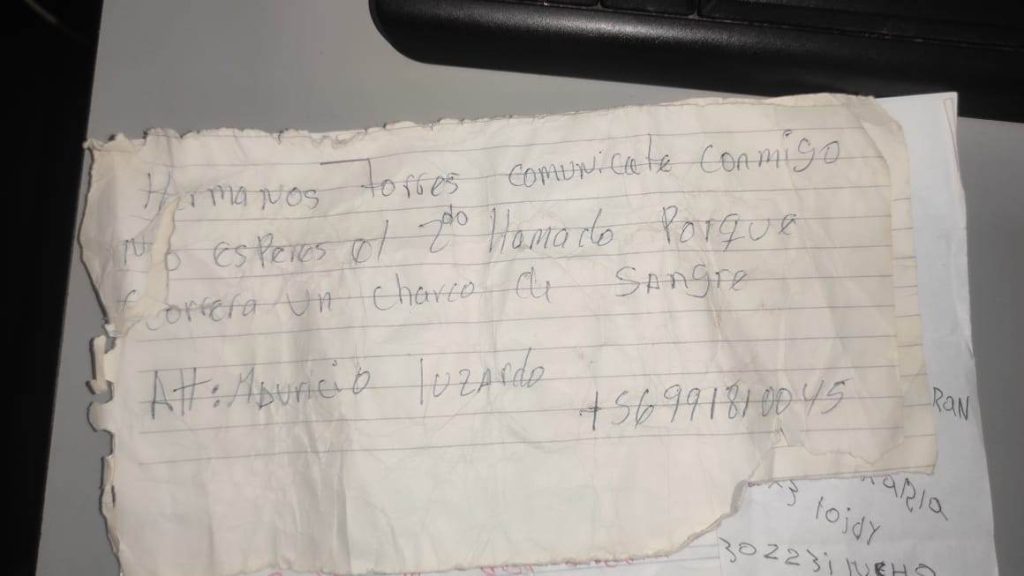 Hermanos Torres comunicate conmigo
No esperes el 2do llamado Porque
Correra un charco de Sangre
Att: Mauricio luzardo
+56991810045
RAN
lojdy